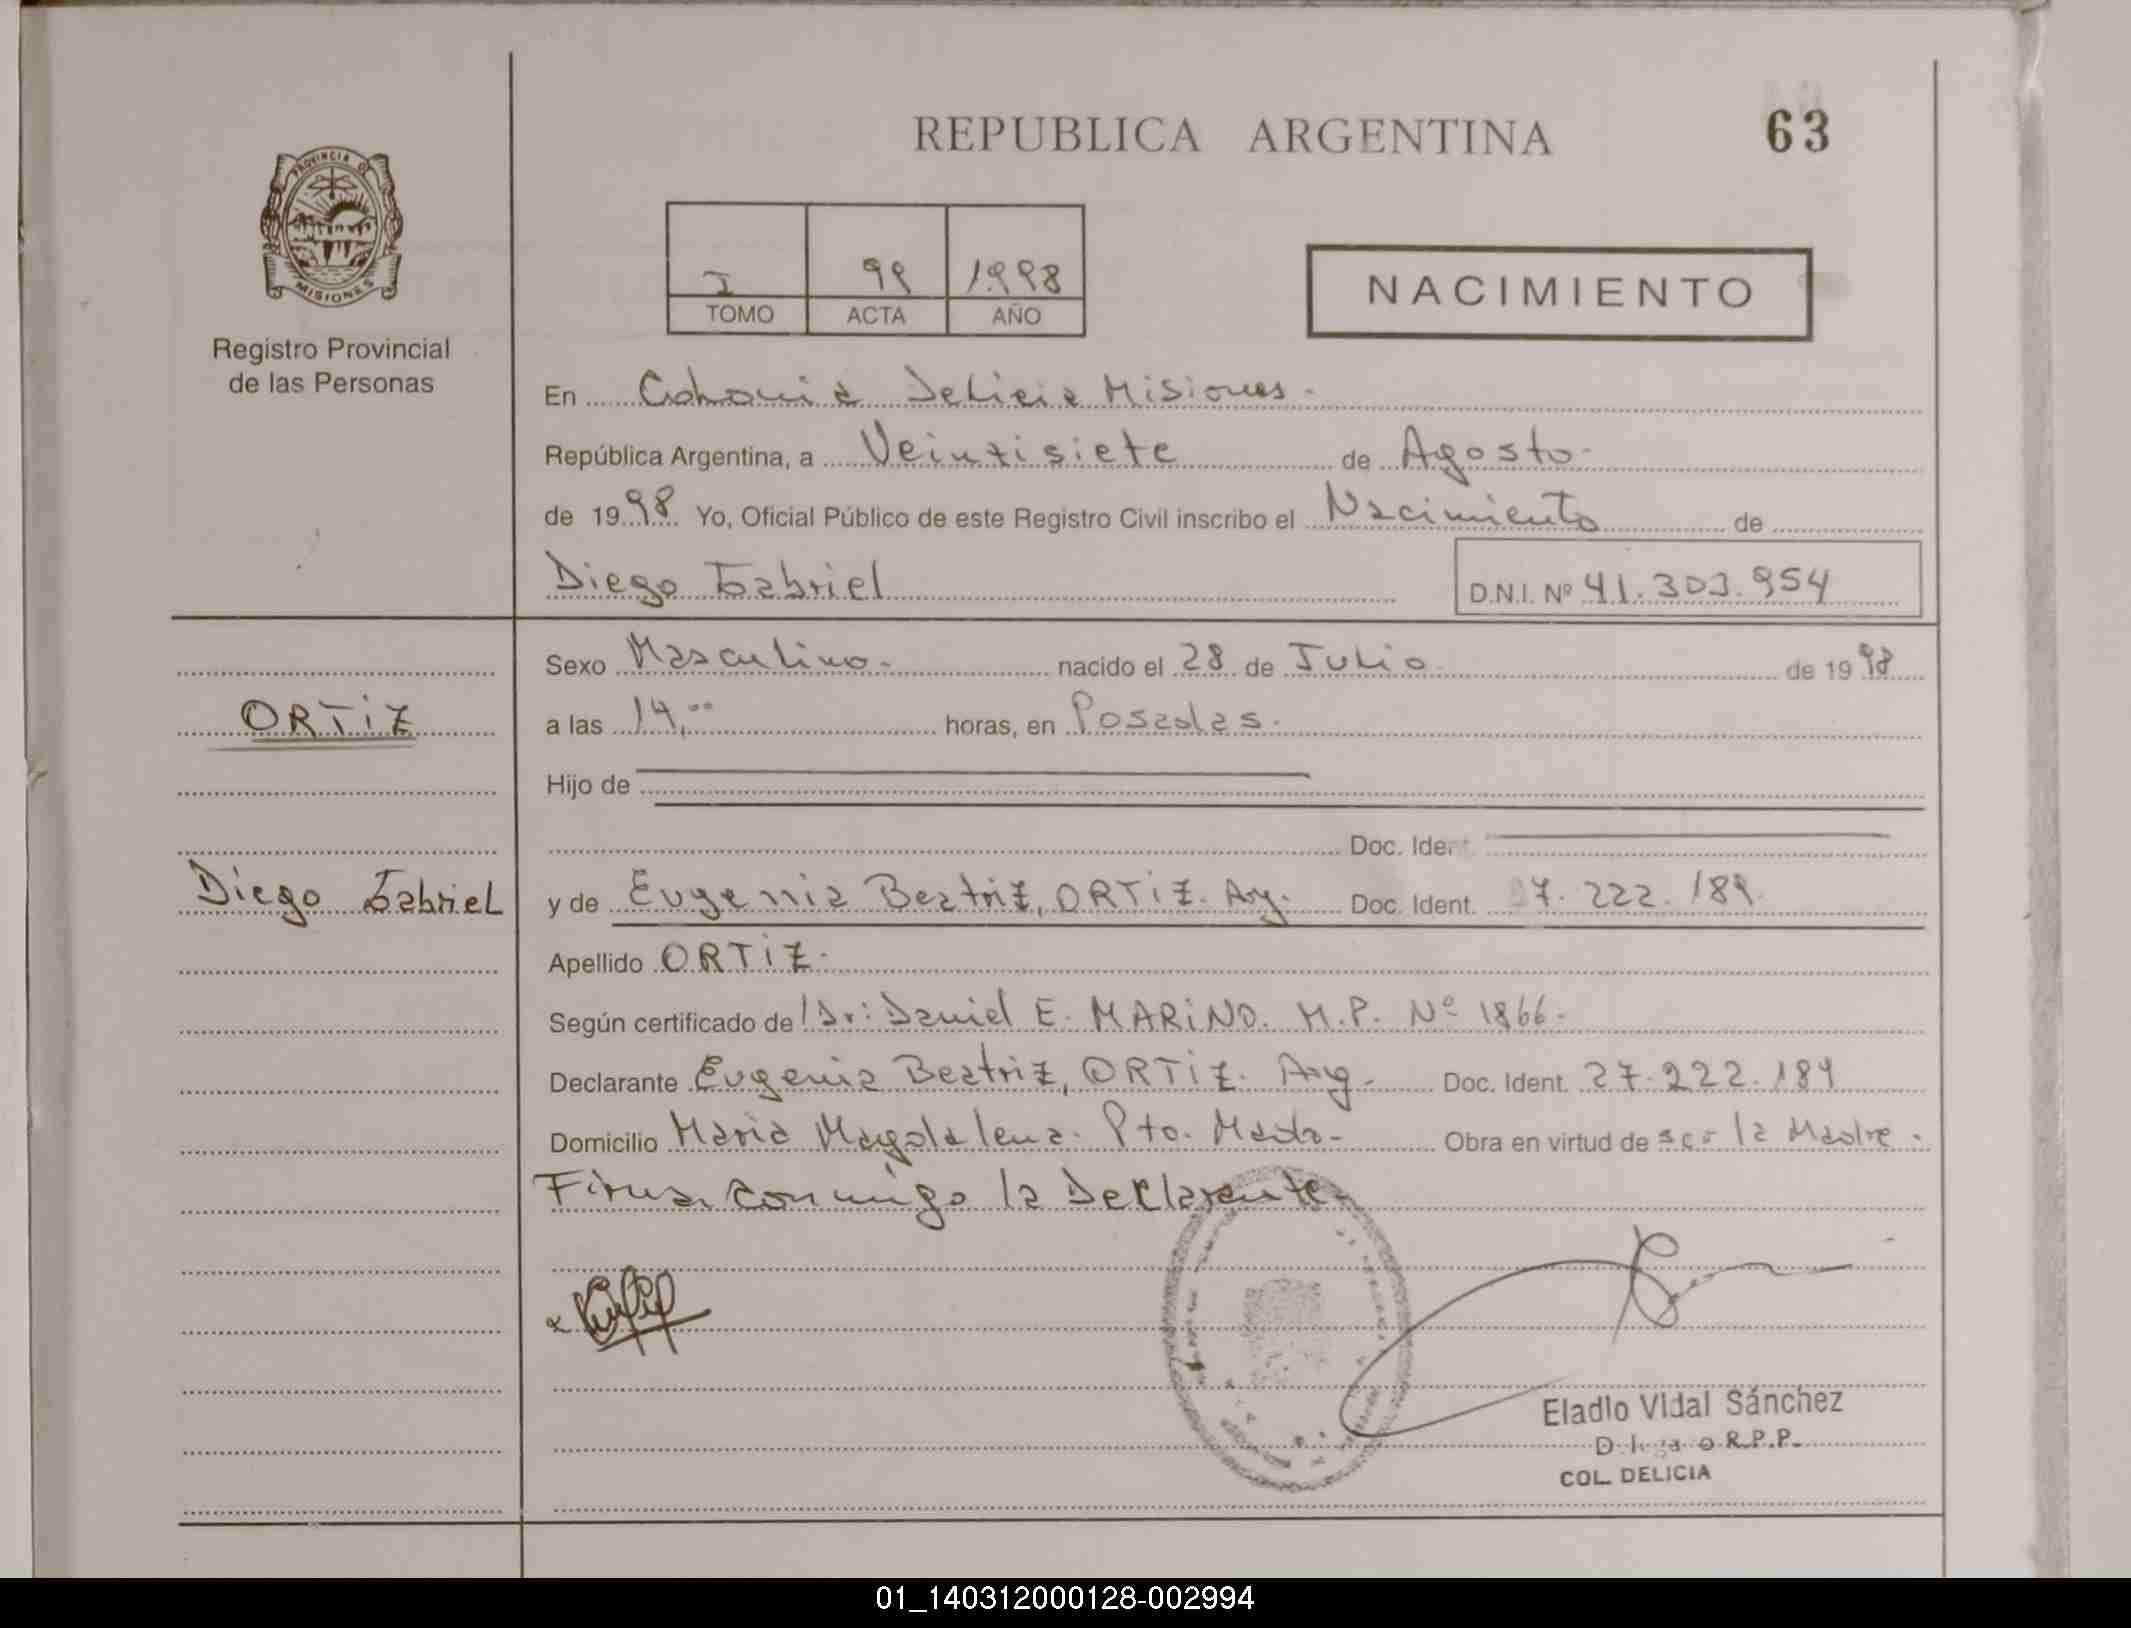 REPUBLICA ARGENTINA
63
PROVINCIA DE
MISIONES
Registro Provincial
de las Personas
I 99 1998
TOMO ACTA AÑO
NACIMIENTO
En Colonia Delicia Misiones.
República Argentina, a Veintisiete de Agosto.
de 1998 Yo, Oficial Público de este Registro Civil inscribo el Nacimiento de
Diego Gabriel D.N.I. Nº 41.303.954
Sexo Masculino. nacido el 28 de Julio de 1998
ORTIZ
a las 14,00 horas, en Posadas.
Hijo de
Doc. Ident.
Diego Gabriel
y de Eugenia Beatriz, ORTIZ. Arg. Doc. Ident. 27.222.189
Apellido ORTIZ.
Según certificado de Dr: Daniel E. MARINO. M.P. Nº 1866.
Declarante Eugenia Beatriz, ORTIZ. Arg. Doc. Ident. 27.222.189
Domicilio Maria Magdalena. Pto. Obra en virtud de ser la Madre.
Firma conmigo la Declarante
Eladio Vidal Sánchez
R.P.P.
COL. DELICIA
01_140312000128-002994